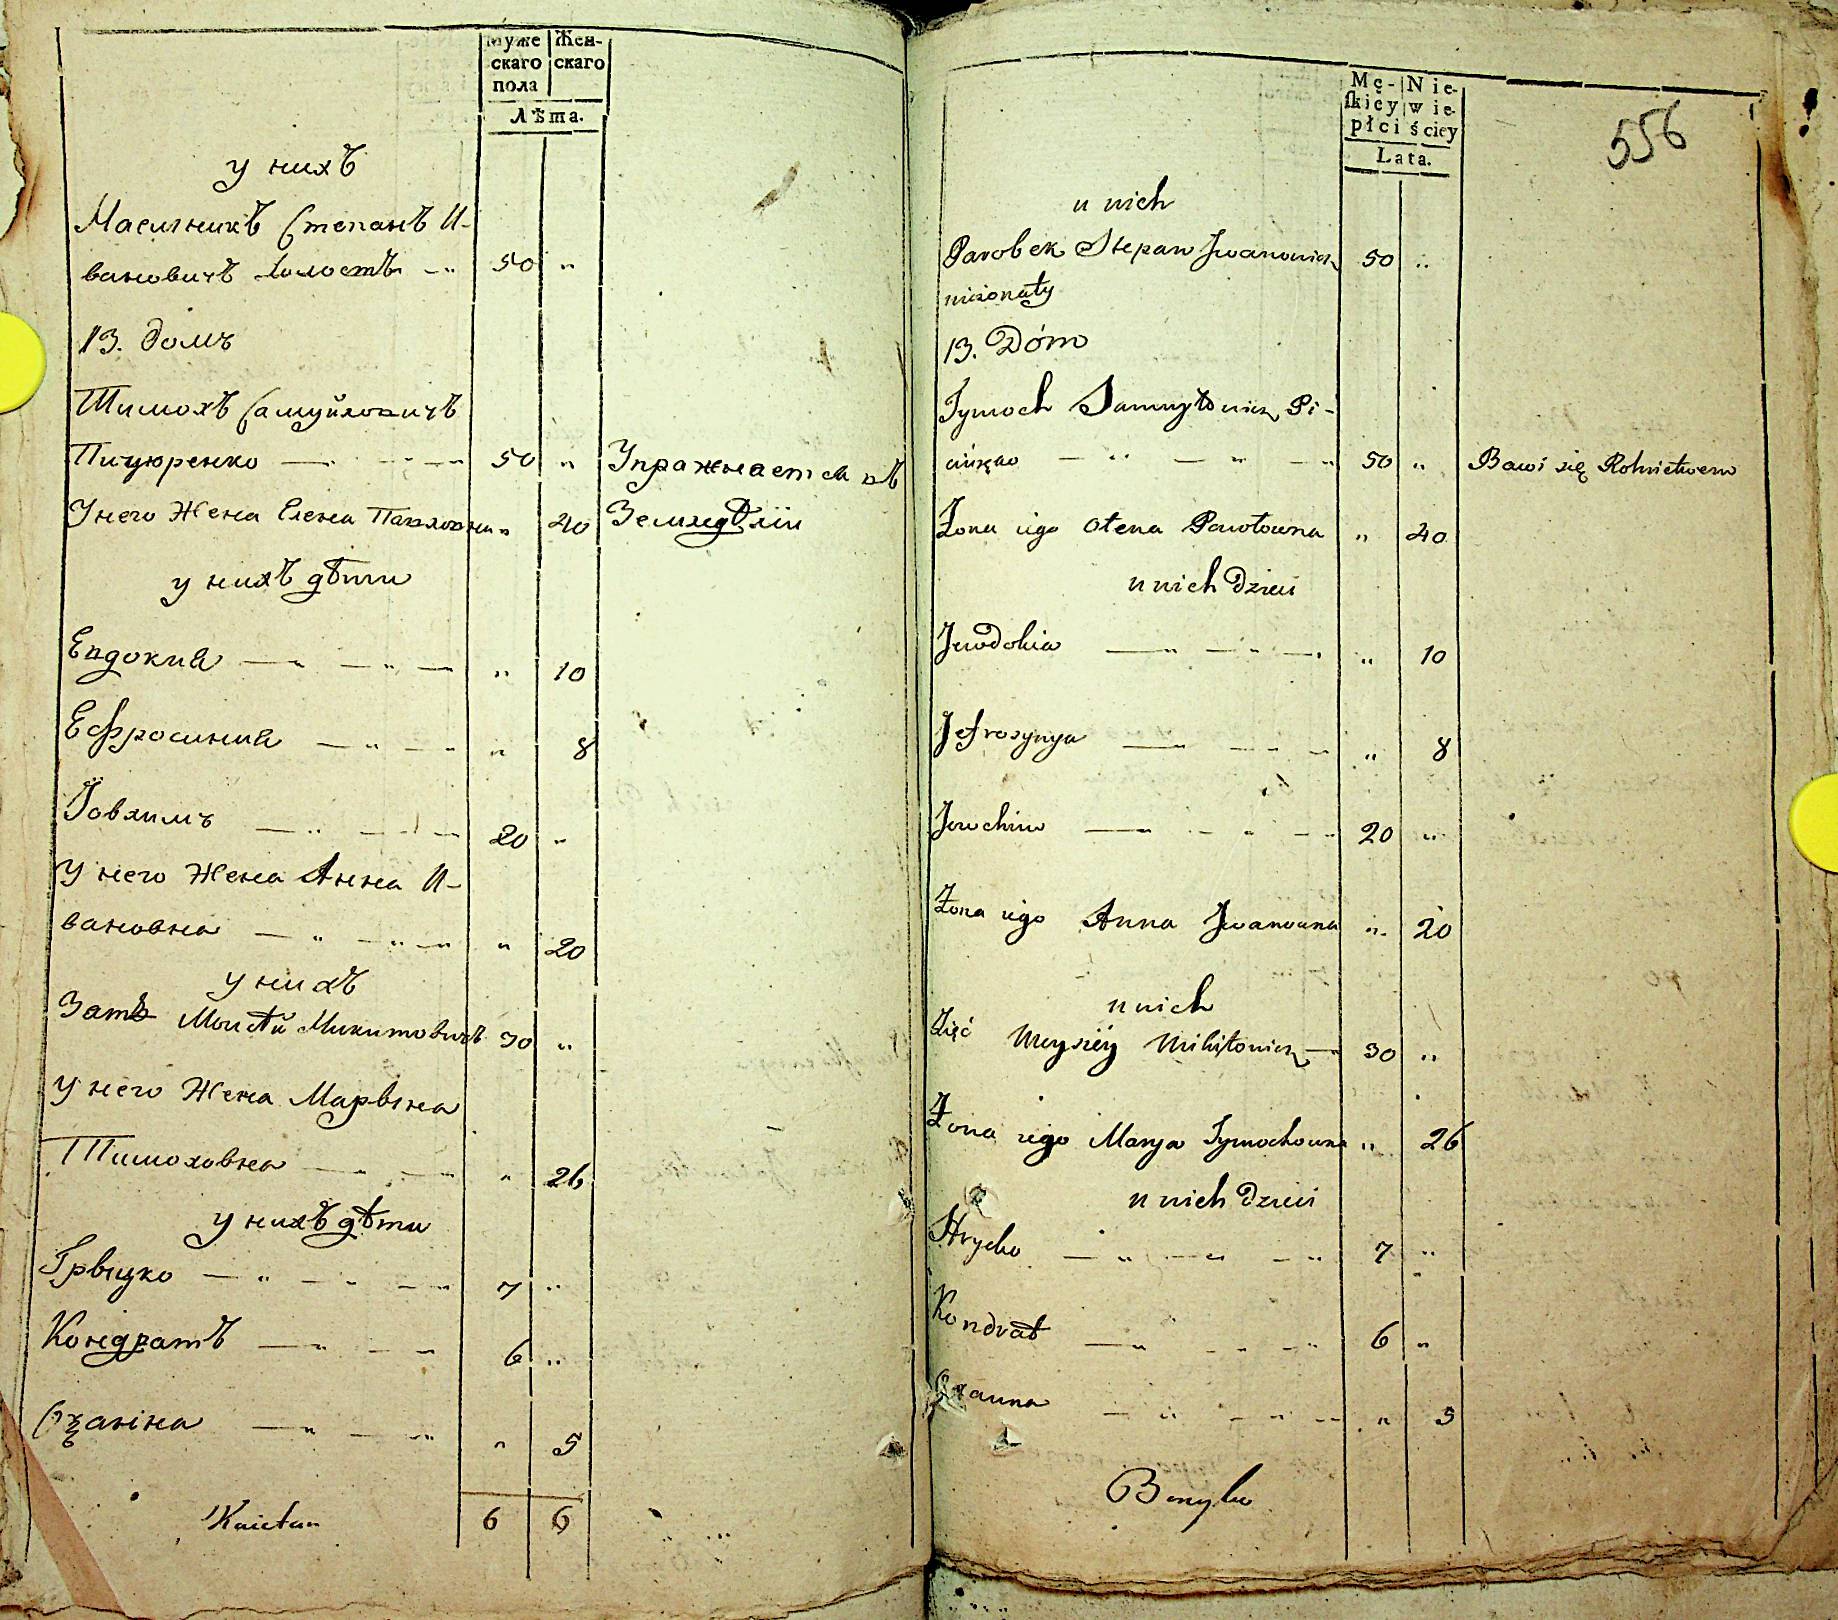 Муже Жен-
скаго скаго
пола
Лѣта.
у нихъ
Масничкъ Степанъ И-
вановичъ холостъ — 50 „
13. домъ
Тимохъ Самуйловичъ
Пицюренко — „ — 50 „ Упражнается въ
У него Жена Елена Павловна „ 40 Земледѣлiи
у нихъ дѣти
Евдокия — „ — „ — „ 10
Ефросиния — „ — „ 8
Iовхимъ — „ — 20 „
У него Жена Анна И-
вановна — „ — „ — „ 20
у нихъ
Зать Моисѣй Микитовичъ 30 „
У него Жена Марьяна
Тимоховна — „ — „ 26
у нихъ дѣти
Грыцко — „ — „ — 7 „
Кондратъ — „ — „ 6 „
Ѻзанна — „ — „ „ 5
Kaietan 6 6
556
Mę- Nie-
skiey wie-
płci ściey
Lata.
u nich
Parobek Stepan Jwanowicz 50 „
nieżonaty
13. Dóm
Tymoch Samuyłowicz Pi-
— „ — „ — „ 50 „ Bawi się Rolnictwem
Żona iego Ołena Pawłowna „ 40
u nich Dzieci
Jewdokia — „ — „ — „ 10
Jefrosynya — „ — „ 8
Jewchim — „ — „ — 20 „
Żona iego Anna Jwanowna „ 20
u nich
Zięć Moysiéy Mikitowicz — 30 „
Żona iego Marya Tymochowna „ 26
u nich Dzieci
Hrycko — „ — „ — „ 7 „
Kondrat — „ — „ 6 „
— „ — „ — „ 5